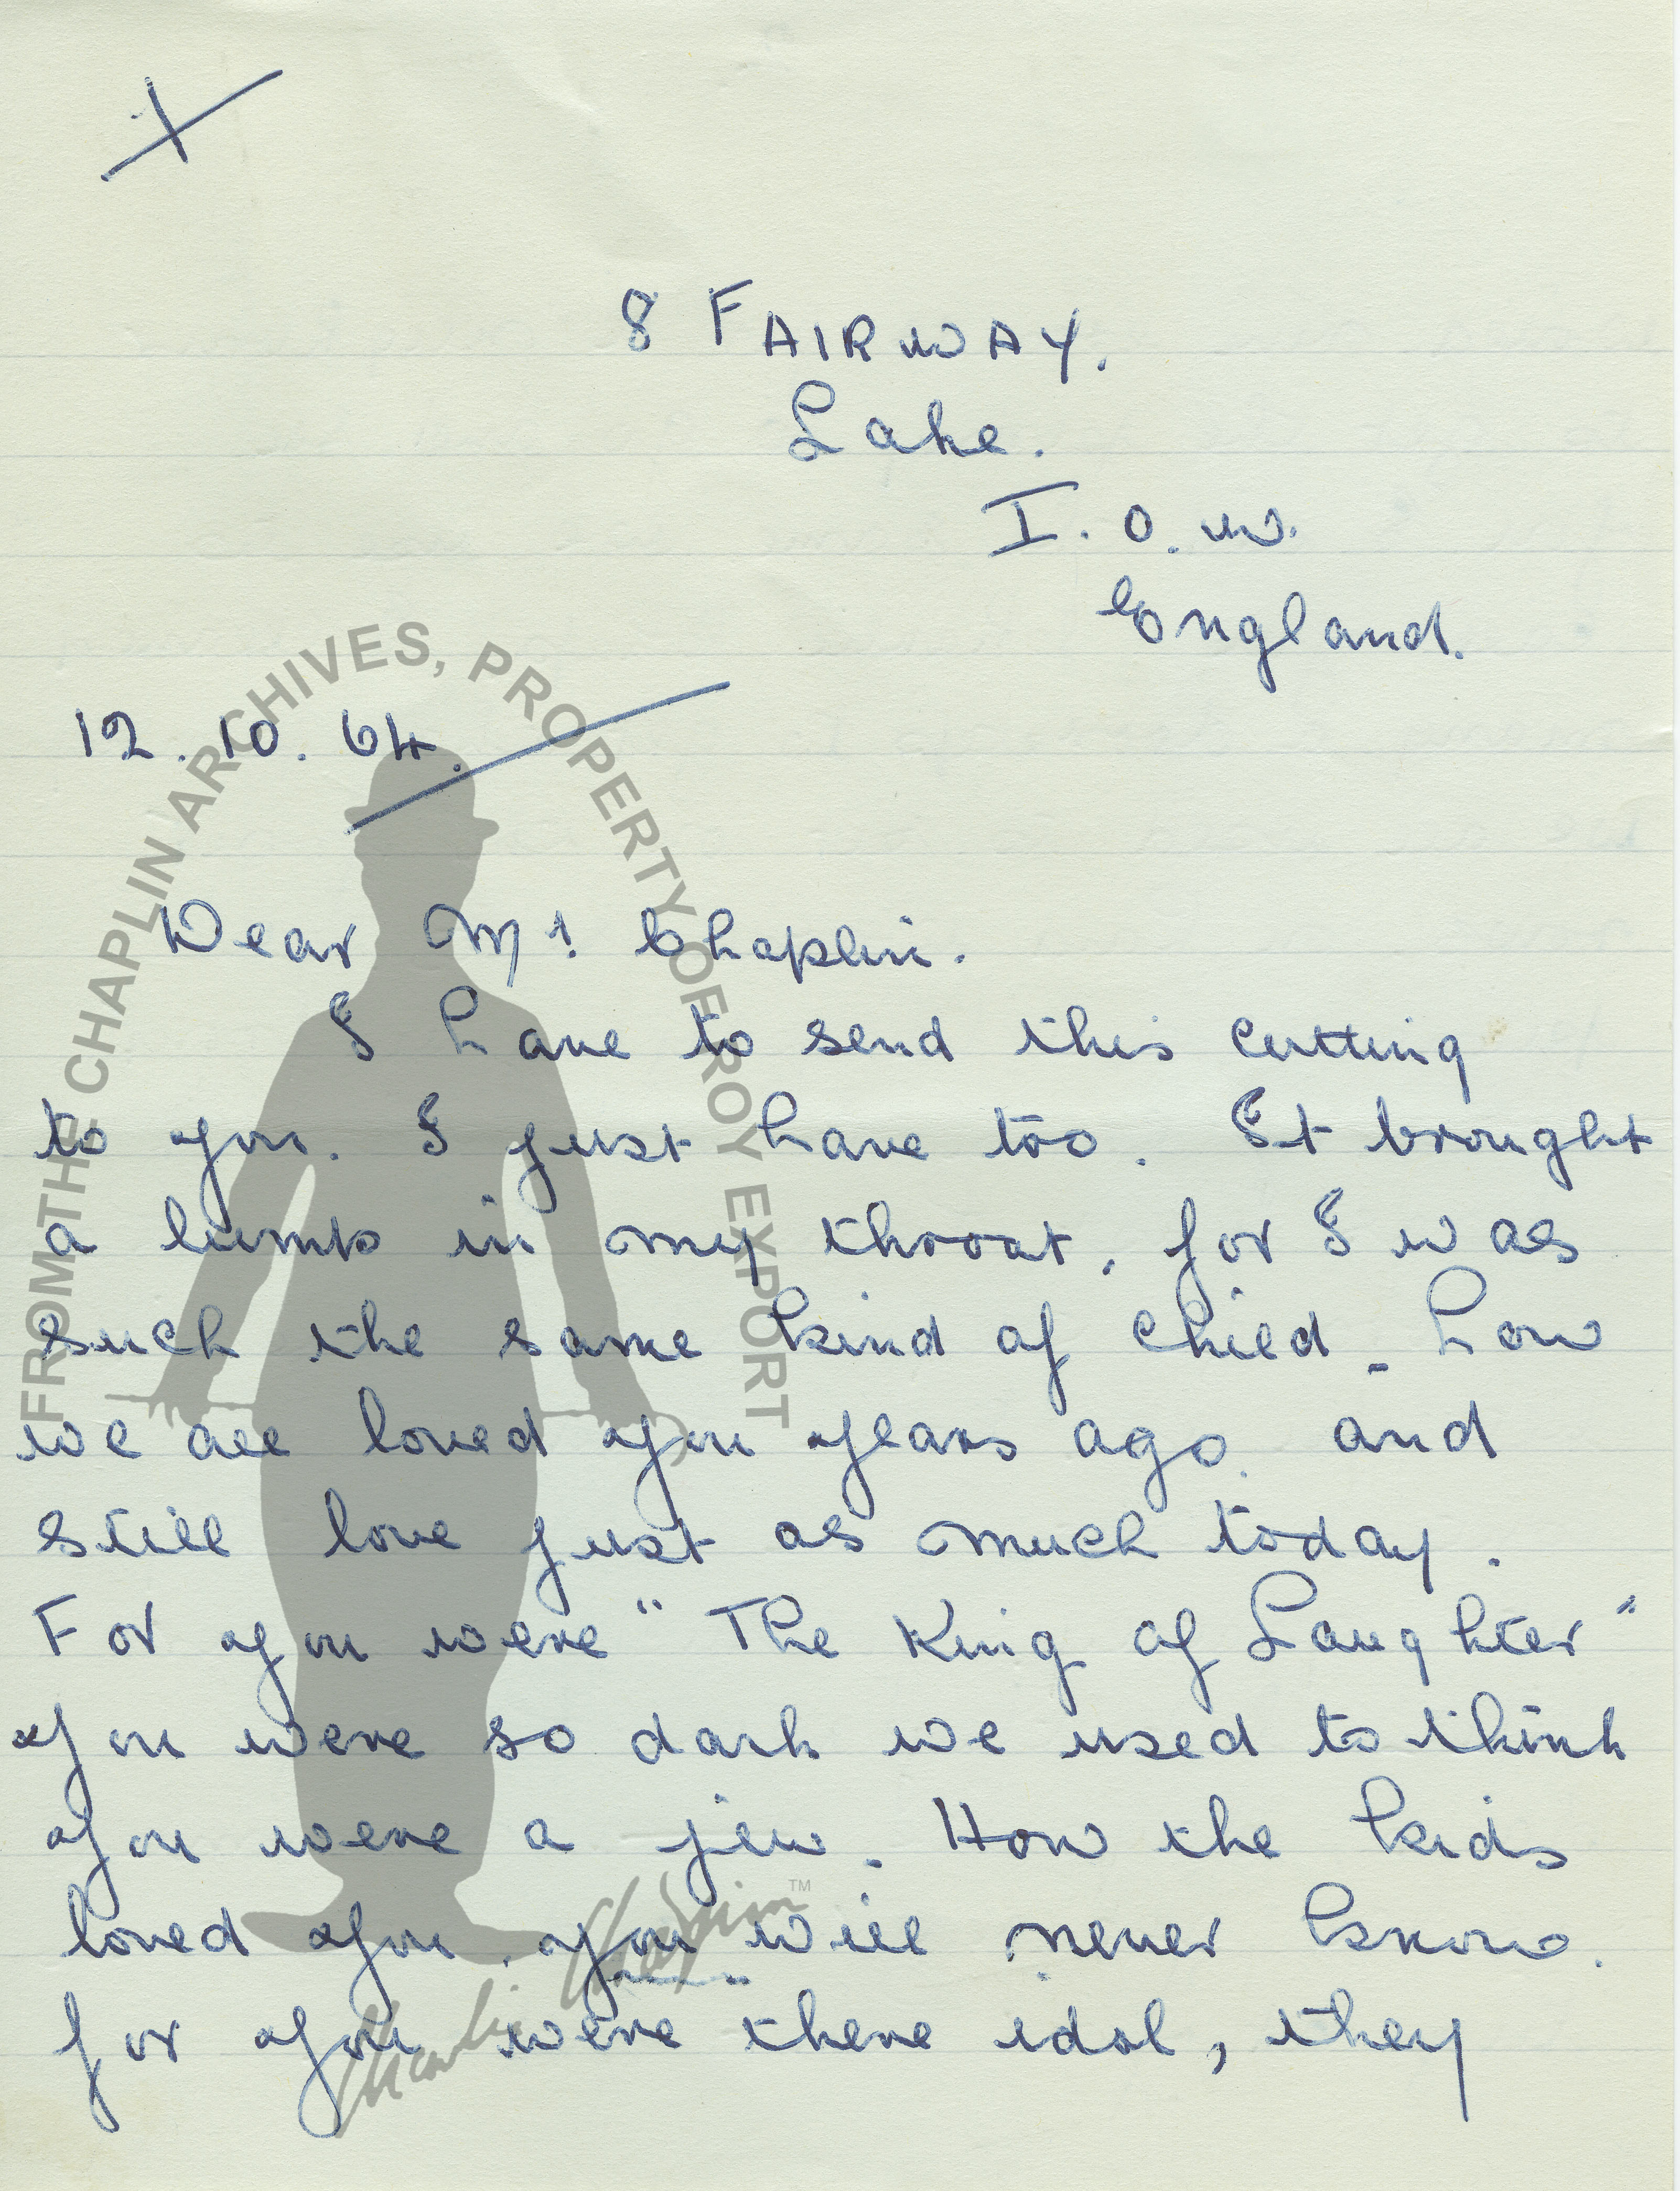 8 FAIRWAY.
Lake.
I.O.W.
England.
12.10.64.
Dear Mr Chaplin.
I have to send this cutting
to you. I just have too. It brought
a lump in my throat, for I was
such the same kind of child - how
we all loved you years ago. and
still love just as much today.
For you were "The King of Laughter"
you were so dark we used to think
you were a jew. How the kids
loved you. you will never know.
for you were there idol, they
FROM THE CHAPLIN ARCHIVES, PROPERTY OF ROY EXPORT
Charlie Chaplin TM